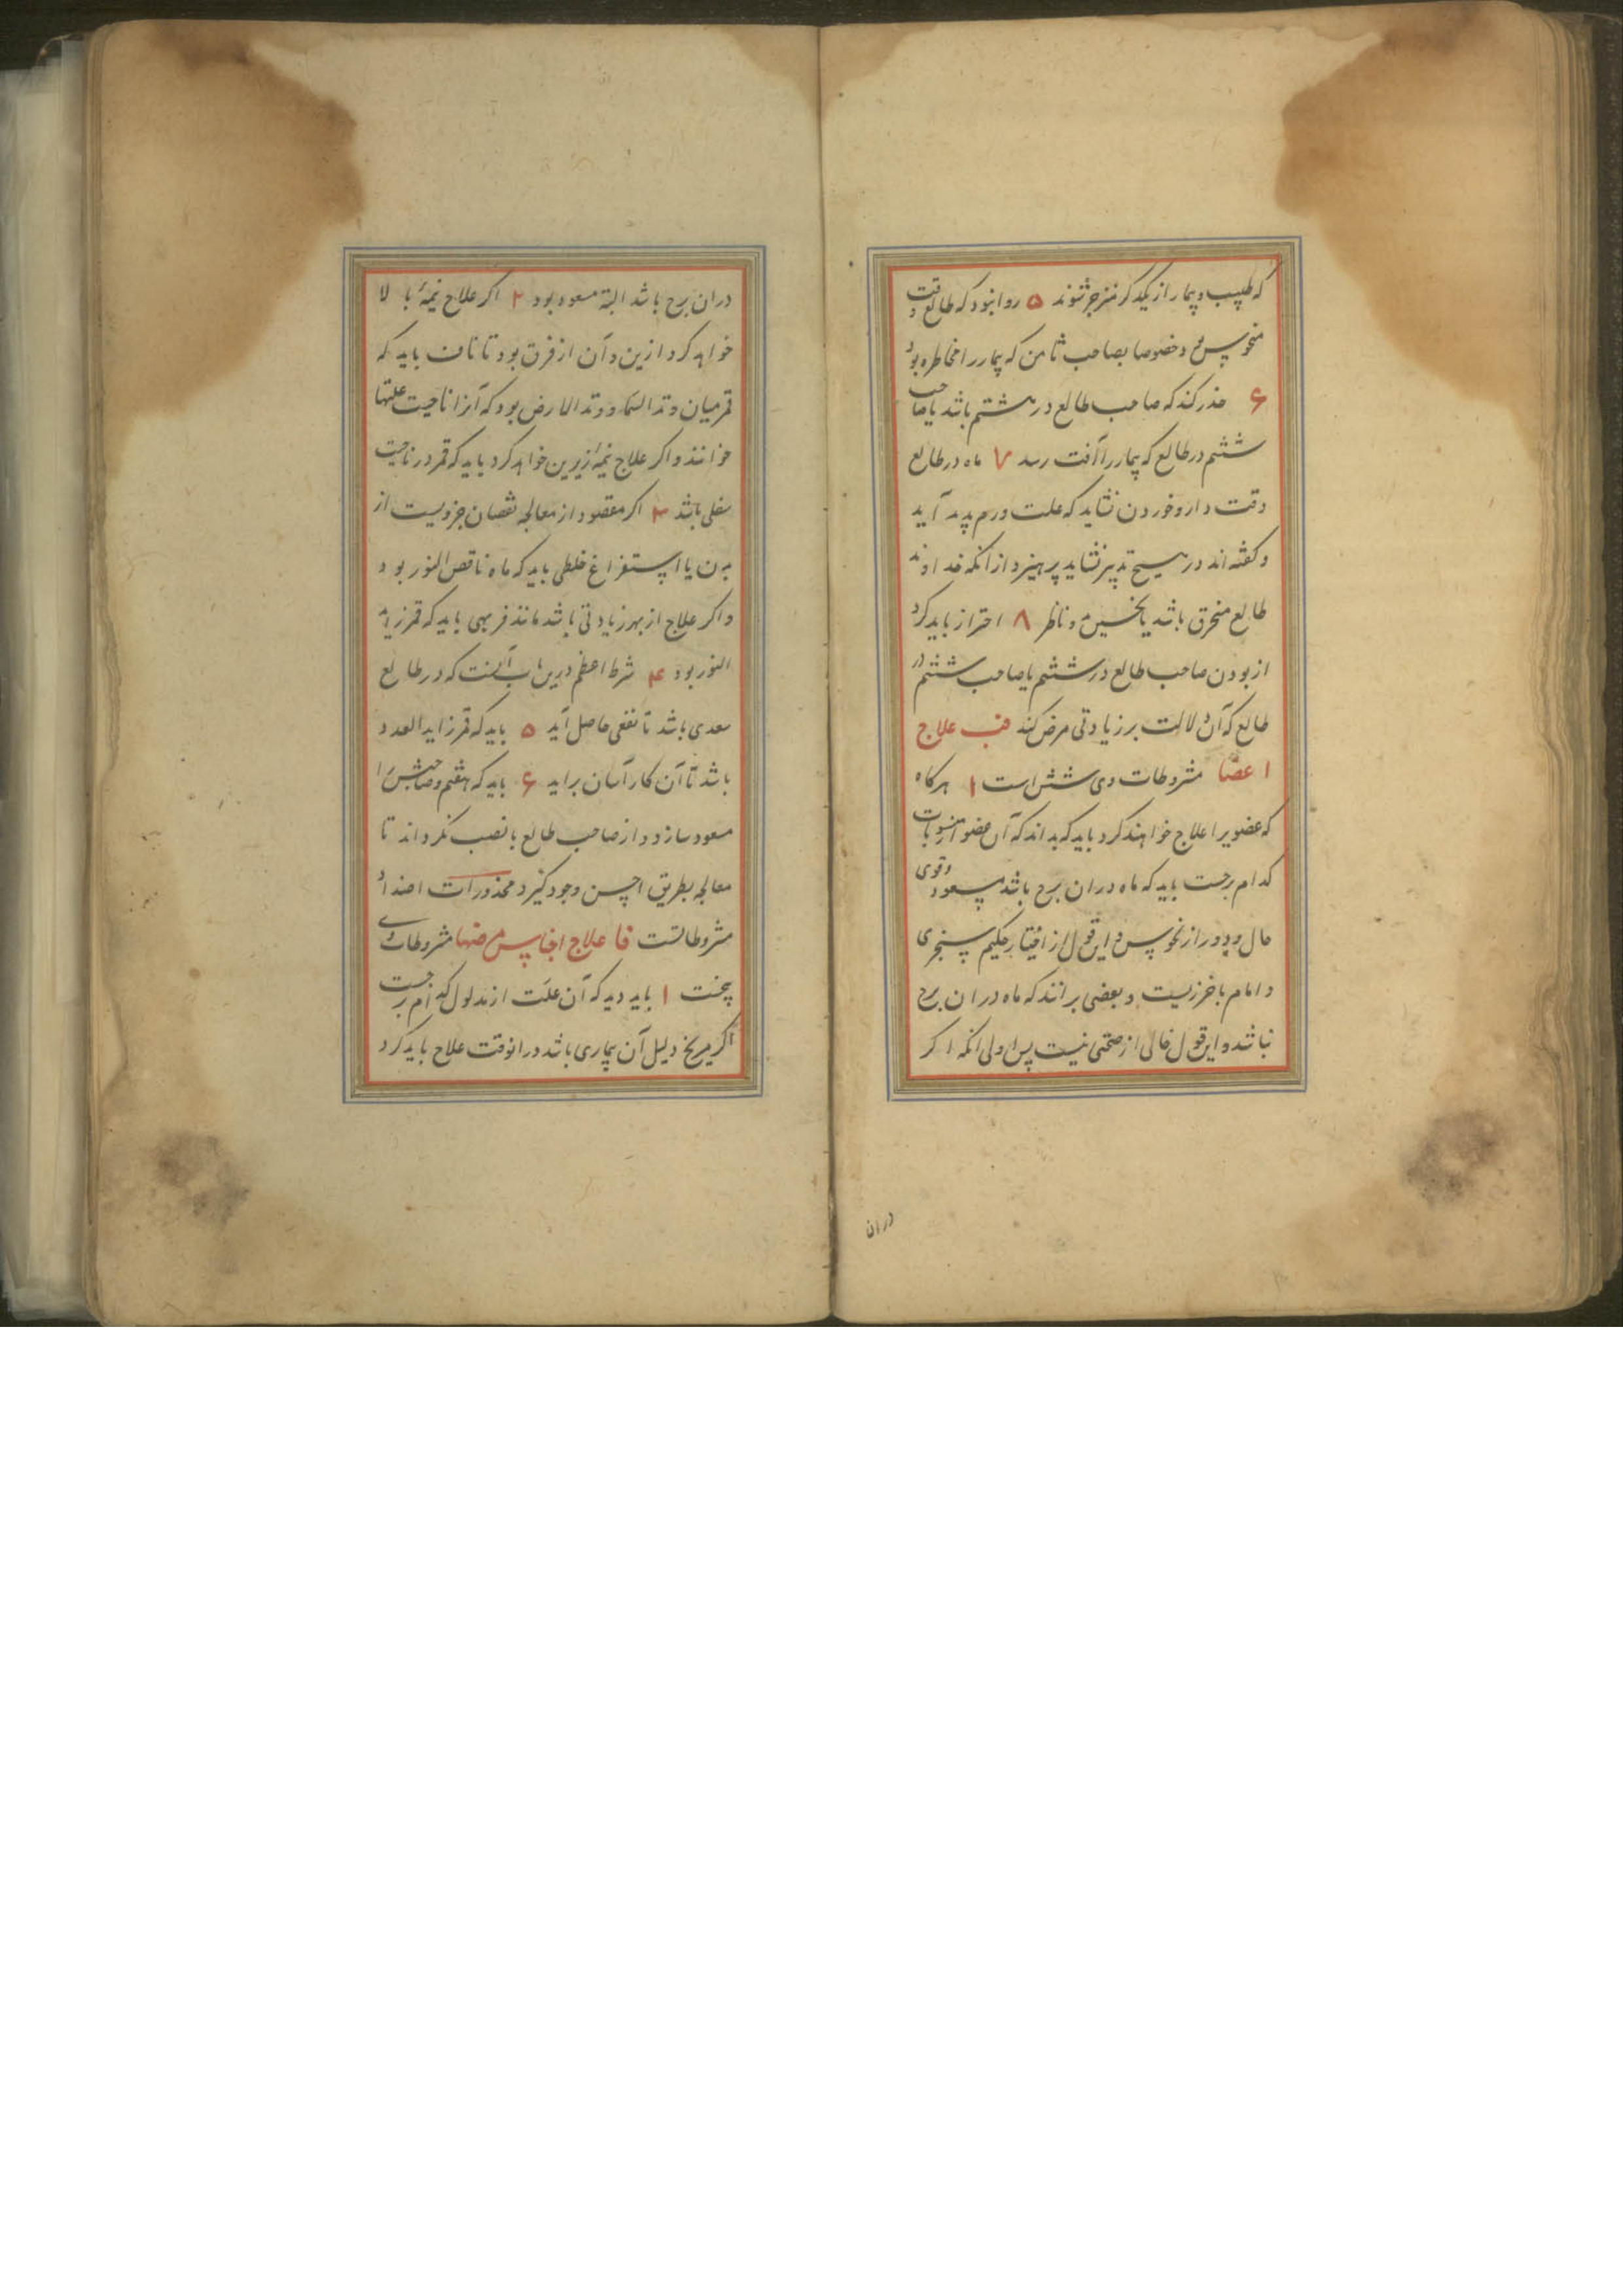 که طبیب و بیمار از یکدیگر منزجر شوند ۵ روا نبود که طالع وقت
منحوس بود خصوصا بصاحب ثامن که بیمار را مخاطره بود
۶ حذر کند که صاحب طالع در هشتم باشد یا صاحب
ششم در طالع که بیمار را آفت رسد ۷ ماه در طالع
وقت دارو خوردن نشاید که علت ورم پدید آید
و کفته‌اند در هیچ تدبیر نشاید پرهیزد از انکه خداوند
طالع محترق باشد یا نحسین و ناظر ۸ احتراز باید کرد
از بودن صاحب طالع در ششم یا صاحب ششم در
طالع که آن دلالت بر زیادتی مرض کند فب علاج
اعضا مشروطات وی شش است ۱ هرکاه
که عضویرا علاج خواهند کرد باید که بداند که آن عضو از منسوبات
کدام برجست باید که ماه دران برج باشد مسعود و قوی
حال و دور از نحوس و این قول از اختیار حکیم سنجری
و امام باخرزیست و بعضی برانند که ماه دران برج
نباشد و این قول خالی از صحتی نیست پس اولی انکه اکر
دران
دران برج باشد البته مسعود بود ۲ اکر علاج نیمهٔ بالا
خواهد کرد از بدن و آن از فرق بود تا ناف باید که
قمر میان وتد السما و وتد الارض بود که آنرا ناحیت علتها
خوانند و اکر علاج نیمهٔ زیرین خواهد کرد باید که قمر در ناحیت
سفلی باشد ۳ اکر مقصود از معالجه نقصان جزویست از
بدن یا استفراغ خلطی باید که ماه ناقص النور بود
و اکر علاج از بهر زیادتی باشد مانند فربهی باید که قمر زاید
النور بود ۴ شرط اعظم درین باب آنست که در طالع
سعدی باشد تا نفعی حاصل آید ۵ باید که قمر زاید العدد
باشد تا آن کار آسان براید ۶ باید که هفتم و صاحبش را
مسعود سازد و از صاحب طالع بانصب نکرداند تا
معالجه بطریق احسن وجود کیرد محذورات اضداد
مشروطاتست فا علاج اجناس مرضها مشروطات وی
پنجست ۱ باید دید که آن علت از مدلول کدام برجست
اکر مریخ دلیل آن بیماری باشد درانوقت علاج باید کرد